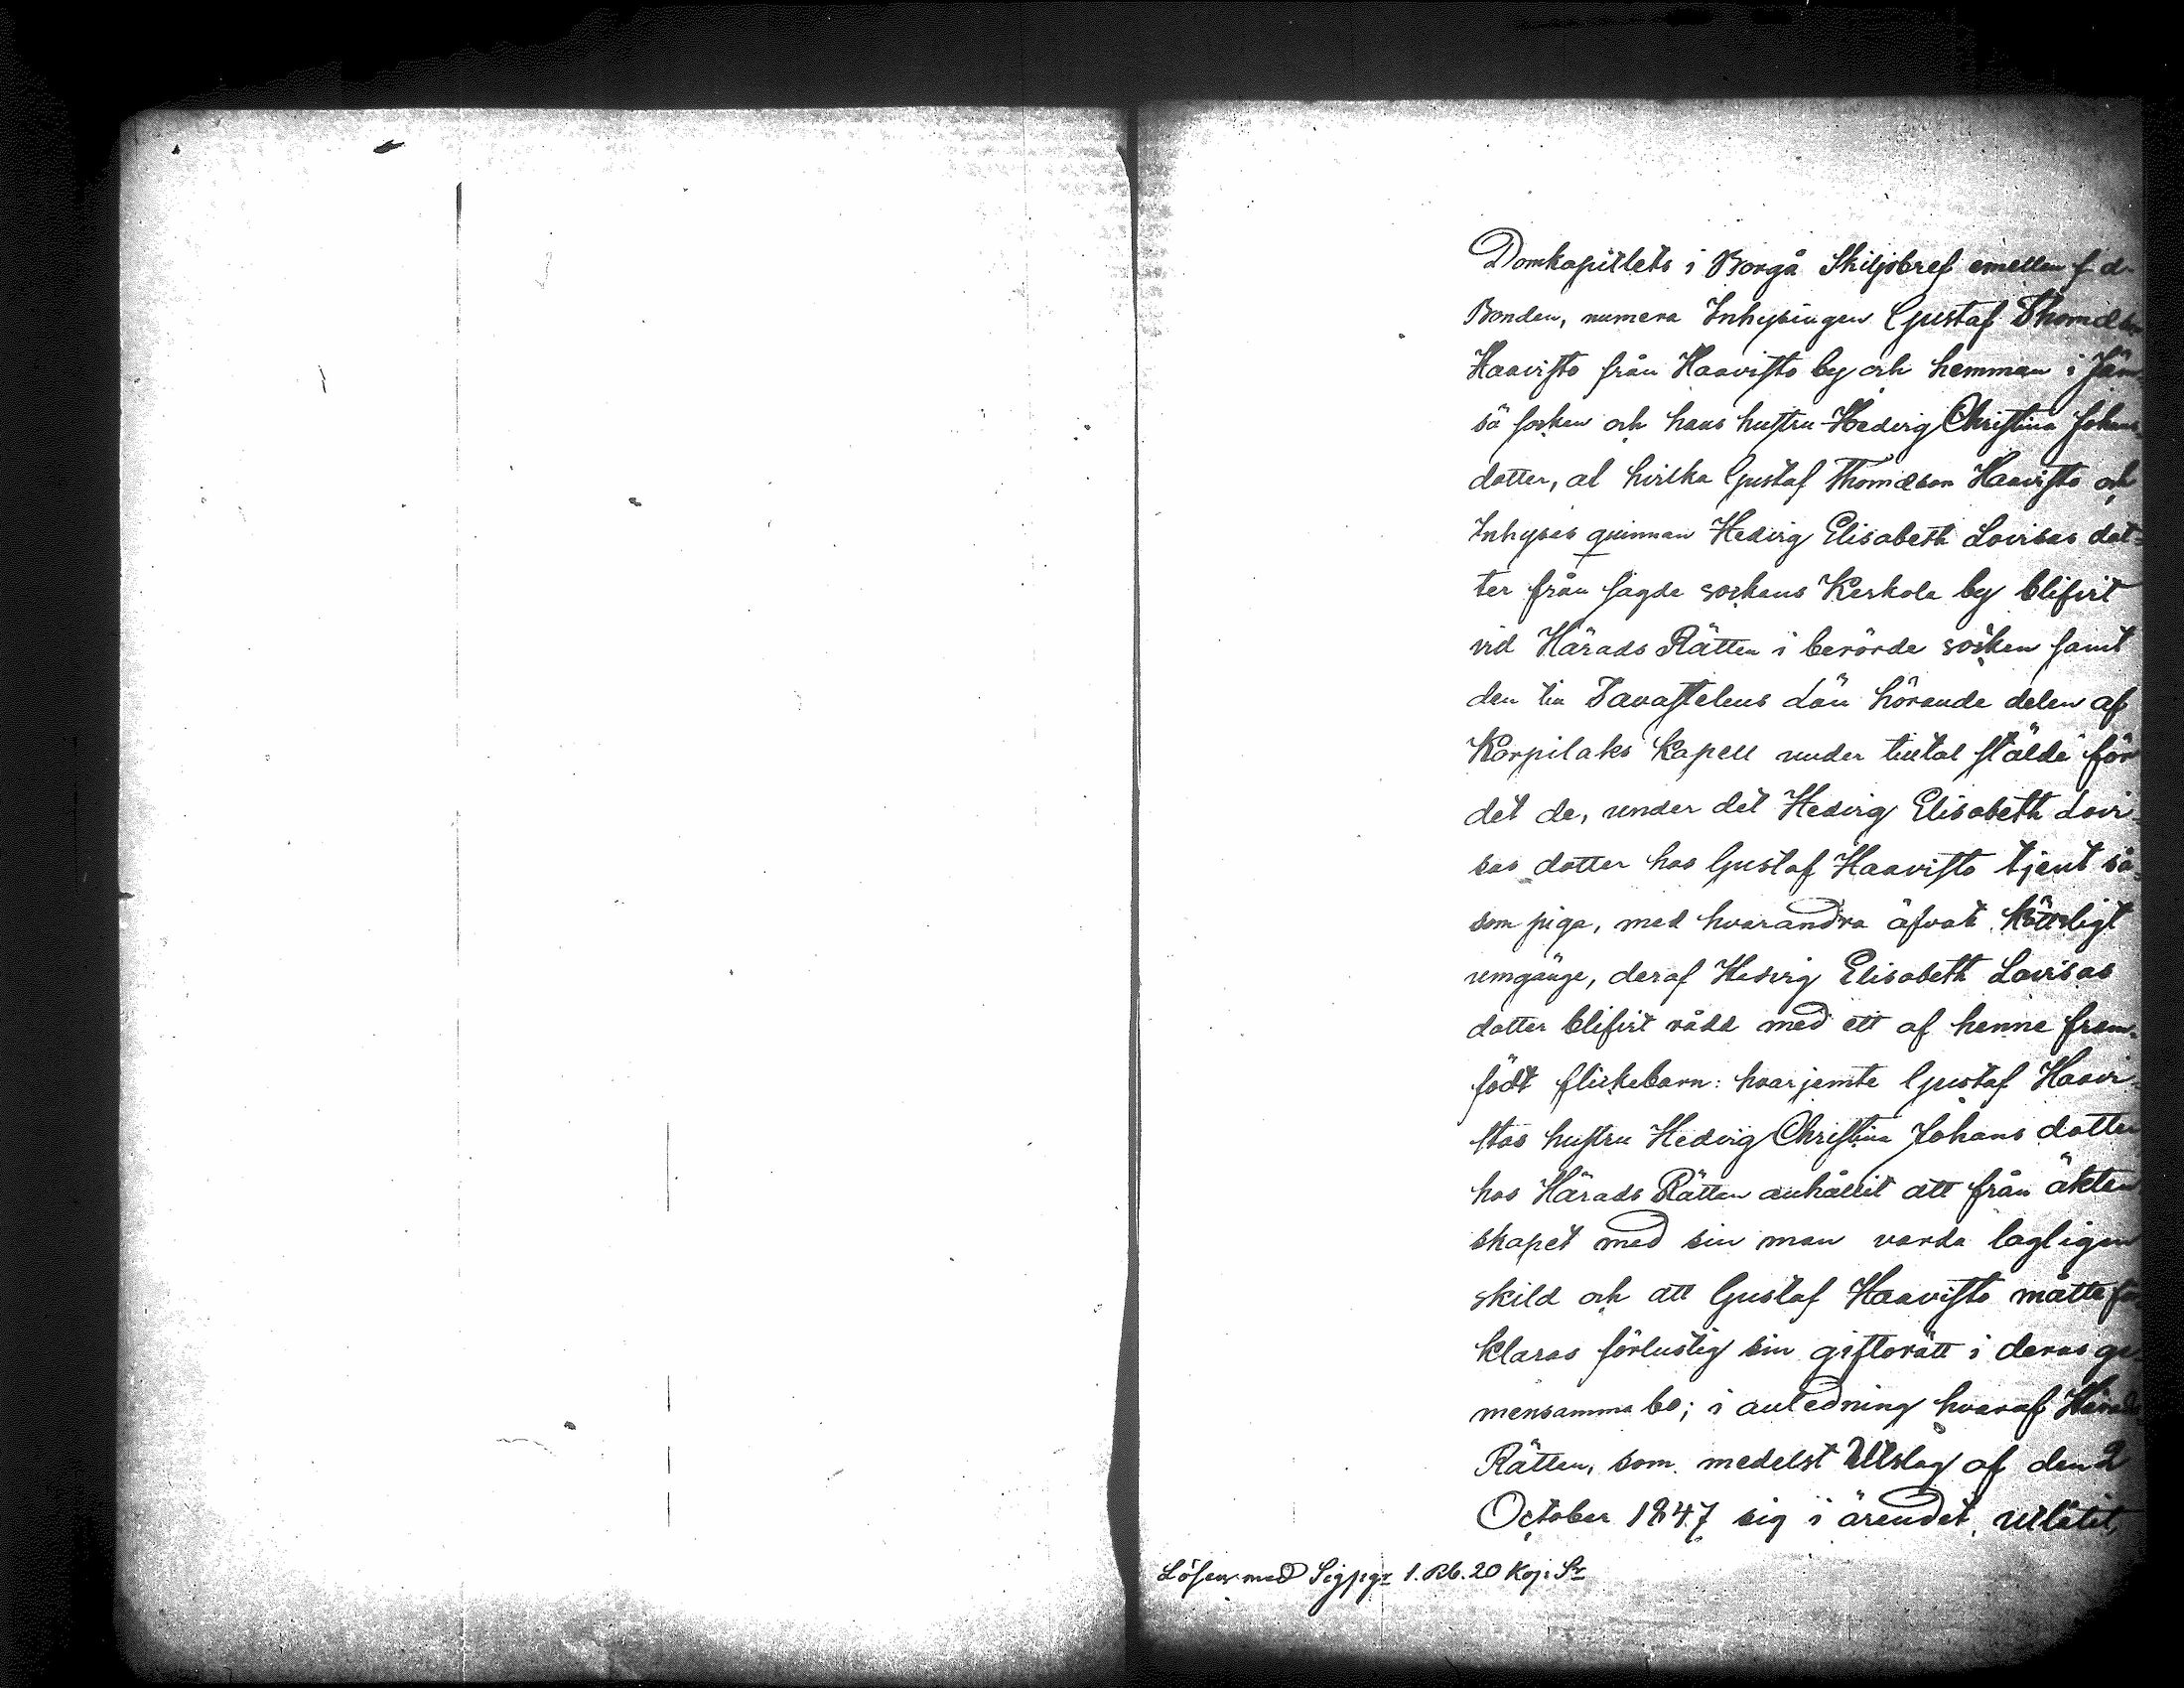 Domkapitlets i Borgå Skiljobref emellan f. d.
Bonden, numera Inhysingen Gustaf Thomasson
Haavisto från Haavisto by och hemman i Jäm-
sä socken och hans hustru Hedvig Christina Johans-
dotter, af hvilka Gustaf Thomasson Haavisto och
Inhyses qvinnan Hedvig Elisabeth Lovisas dot-
ter från sagde sockens Kerkola by blifvit
vid Härads Rätten i berörde socken samt
den till Tavastehus Län hörande delen af
Korpilaks Kapell under tilltal stälde för
det de, under det Hedvig Elisabeth Lovi-
sas dotter hos Gustaf Haavisto tjent så-
som piga, med hvarandra öfvat köttsligt
umgänge, deraf Hedvig Elisabeth Lovisas
dotter blifvit rådd med ett af henne fram-
födt flickebarn: hvarjemte Gustaf Haavi-
stos hustru Hedvig Christina Johans dotter
hos Härads Rätten anhållit att från äkten
skapet med sin man varda lagligen
skild och att Gustaf Haavisto måtte för
klaras förlustig sin giftorätt i deras ge-
mensamma bo; i anledning hvaraf Härads
Rätten, som medelst Utslag af den 2
October 1847 sig i ärendet utlåtit,
Lösen med Sigpgr 1. Rb. 20 Kop. Sr